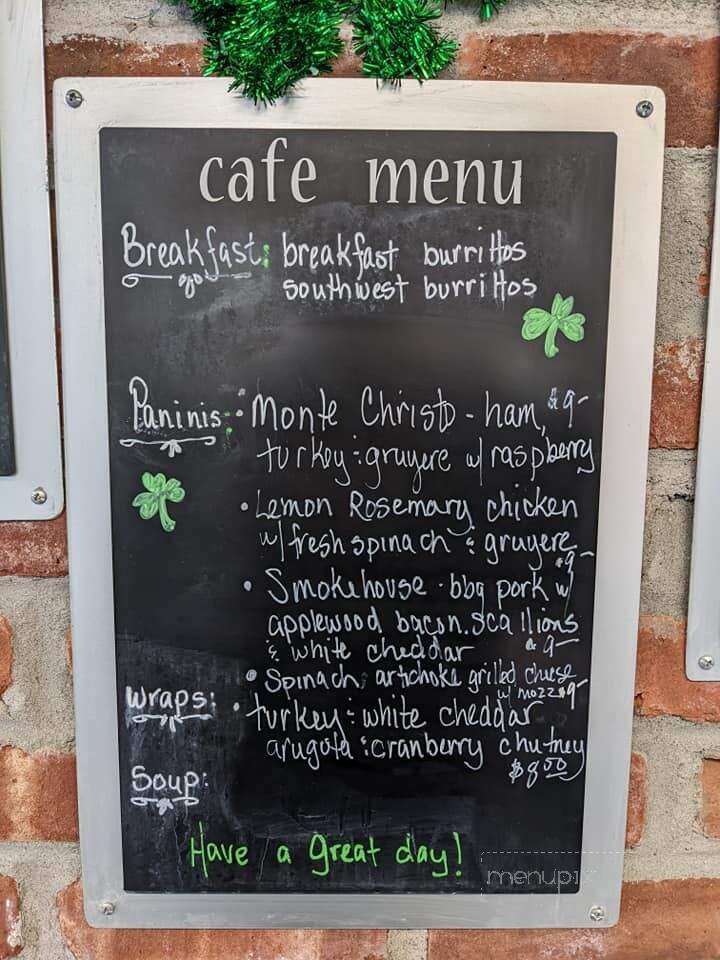 cafe menu
Breakfast: breakfast burrittos
southwest burrittos
Paninis: • Monte Christo - ham, $9-
turkey & gruyere w/ raspberry
• Lemon Rosemary chicken
w/ fresh spinach & gruyere
$9-
• Smokehouse - bbq pork w/
applewood bacon. scallions
& white cheddar $9-
• Spinach, artichoke grilled cheese
w/ mozz $9-
wraps: • turkey & white cheddar
arugula & cranberry chutney
$8.00
Soup:
Have a great day!
menupix